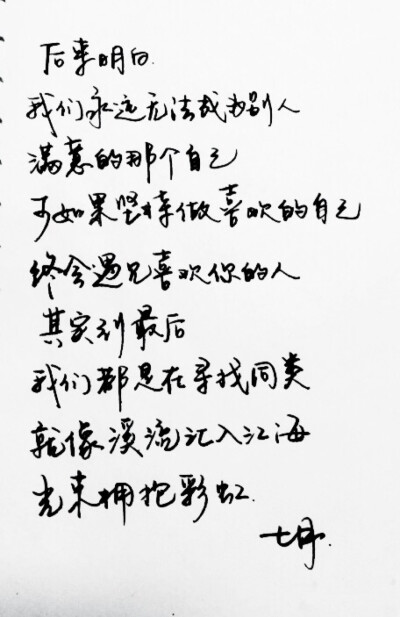 后来明白.
我们永远无法成为别人
满意的那个自己
可如果坚持做喜欢的自己
终会遇见喜欢你的人
其实到最后
我们都是在寻找同类
就像溪流汇入江海
光束拥抱彩虹.
七月.